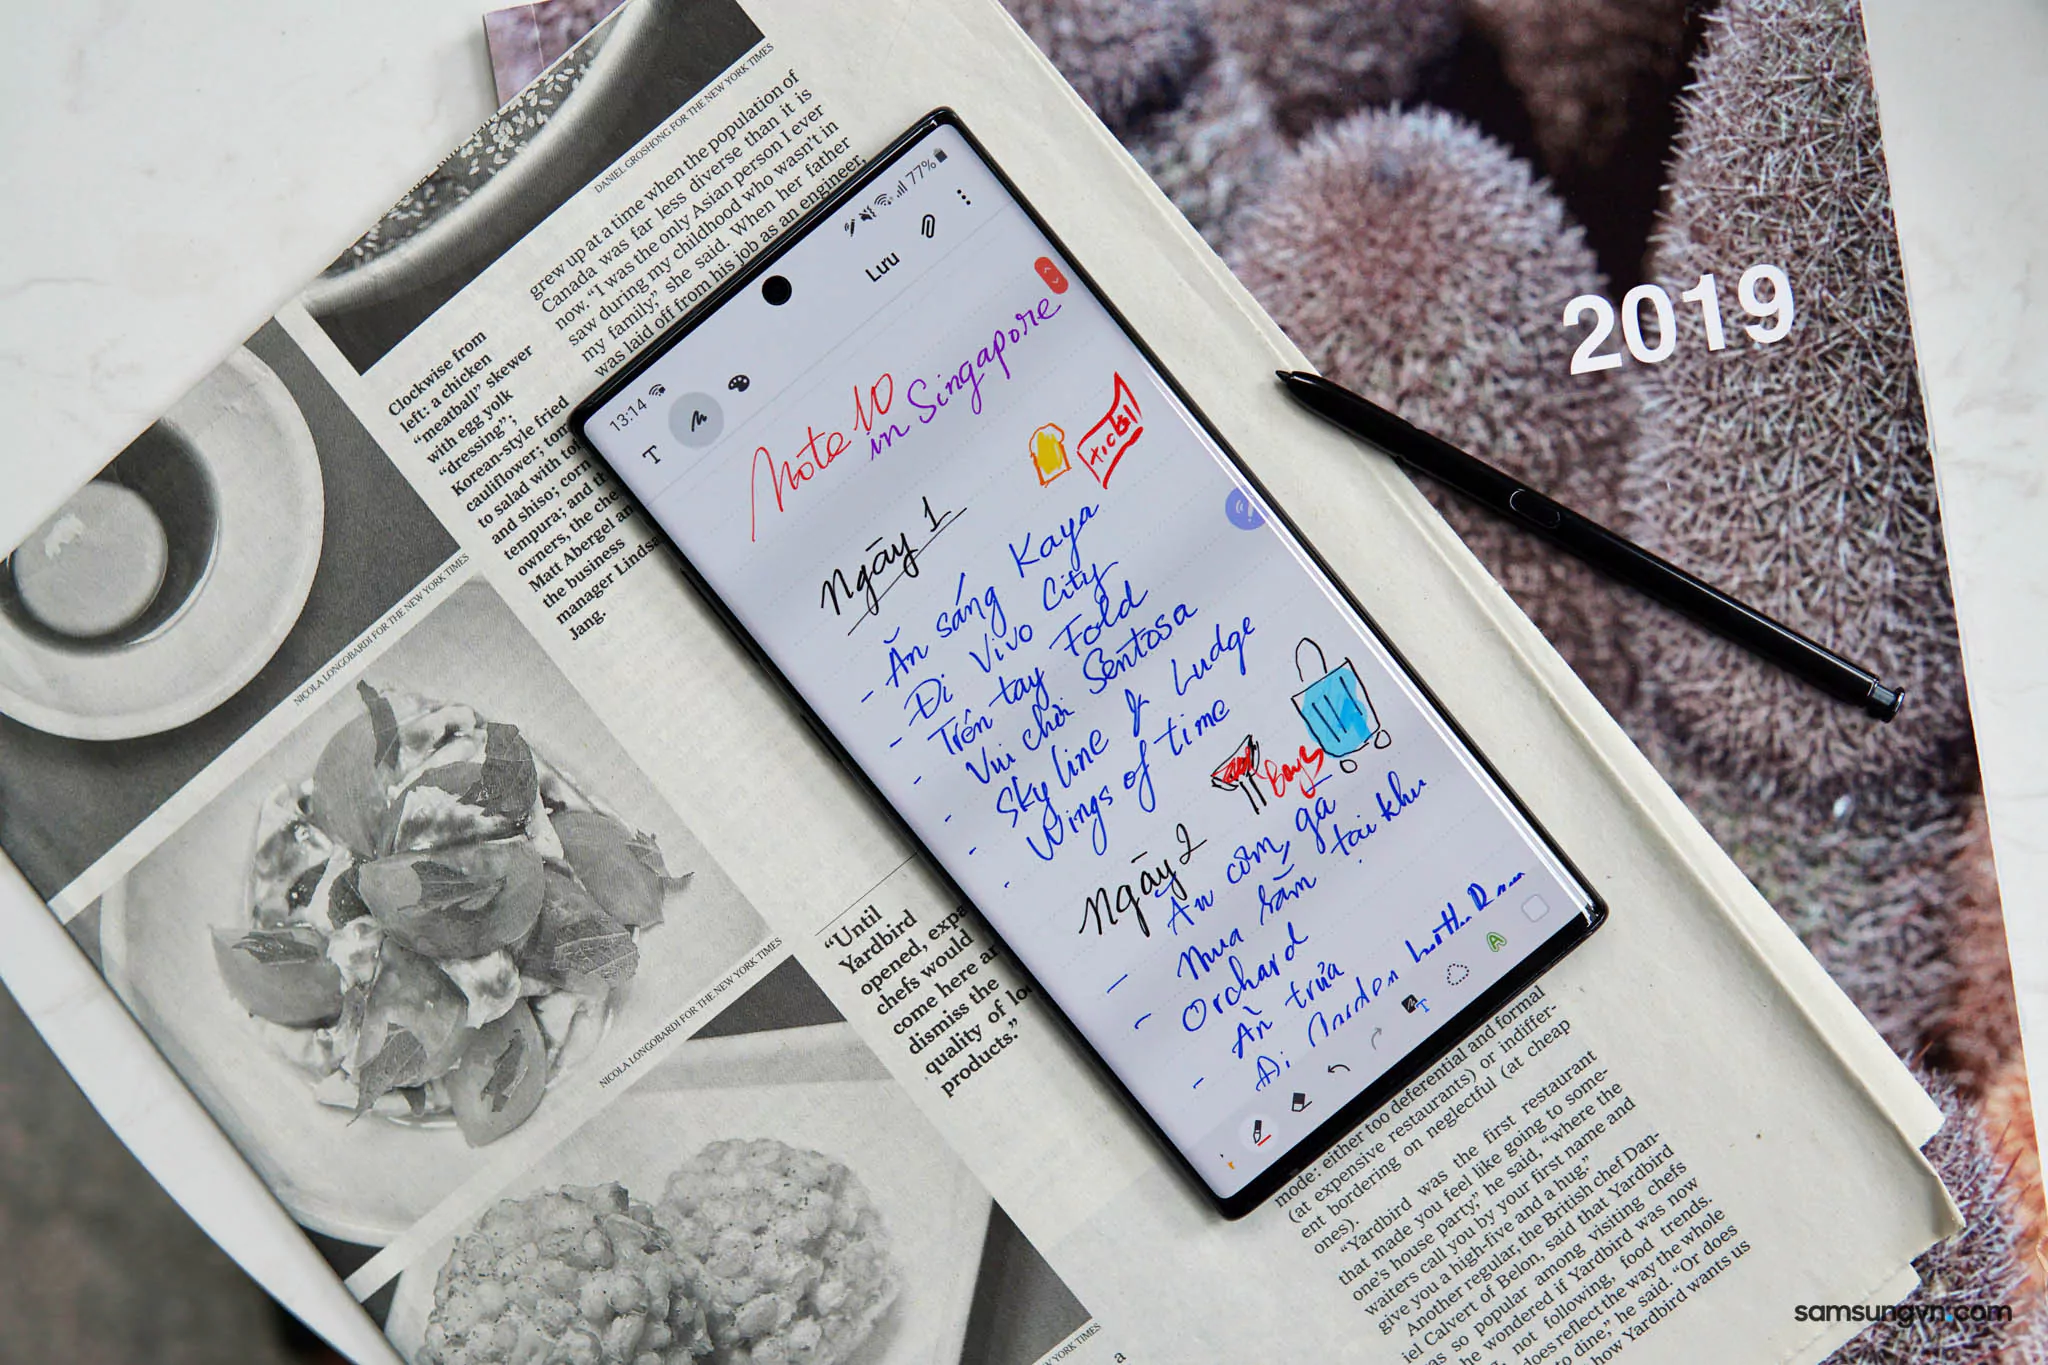 DANIEL GROSHONG FOR THE NEW YORK TIMES
grew up at a time when the population of
Canada was far less diverse than it is
now. “I was the only Asian person I ever
saw during my childhood who wasn’t in
my family,” she said. When her father
was laid off from his job as an engineer,
Clockwise from
left: a chicken
“meatball” skewer
with egg yolk
“dressing”;
Korean-style fried
cauliflower;
to salad with
and shiso; corn
tempura; and
owners, the
Matt Abergel
the business
manager
Jang.
NICOLA LONGOBARDI FOR THE NEW YORK TIMES
NICOLA LONGOBARDI FOR THE NEW YORK TIMES
“Until
Yardbird
opened,
chefs would
come here
dismiss the
quality of
products.”
13:14
77%
T
Lưu
Note 10
in Singapore
Ticket
Ngày 1
- Ăn sáng Kaya
- Đi Vivo City
- Trên tay Fold
- Vui chơi Sentosa
- Sky line & Ludge
- Wings of time
Ngày 2
- Ăn cơm gà
- Mua sắm tại khu
Orchard
- Ăn trưa
- Đi
2019
mode: either too deferential and formal
(at expensive restaurants) or indiffer-
ent bordering on neglectful (at cheap
ones).
“Yardbird was the first restaurant
that made you feel like going to some-
one’s house party,” he said, “where the
waiters call you by your first name and
give you a high-five and a hug.”
Another regular, the British chef Dan-
iel Calvert of Belon, said that Yardbird
was so popular among visiting chefs
he wondered if Yardbird was now
not following, food trends.
does reflect the way the whole
to dine,” he said. “Or does
how Yardbird wants us
a
samsungvn.com